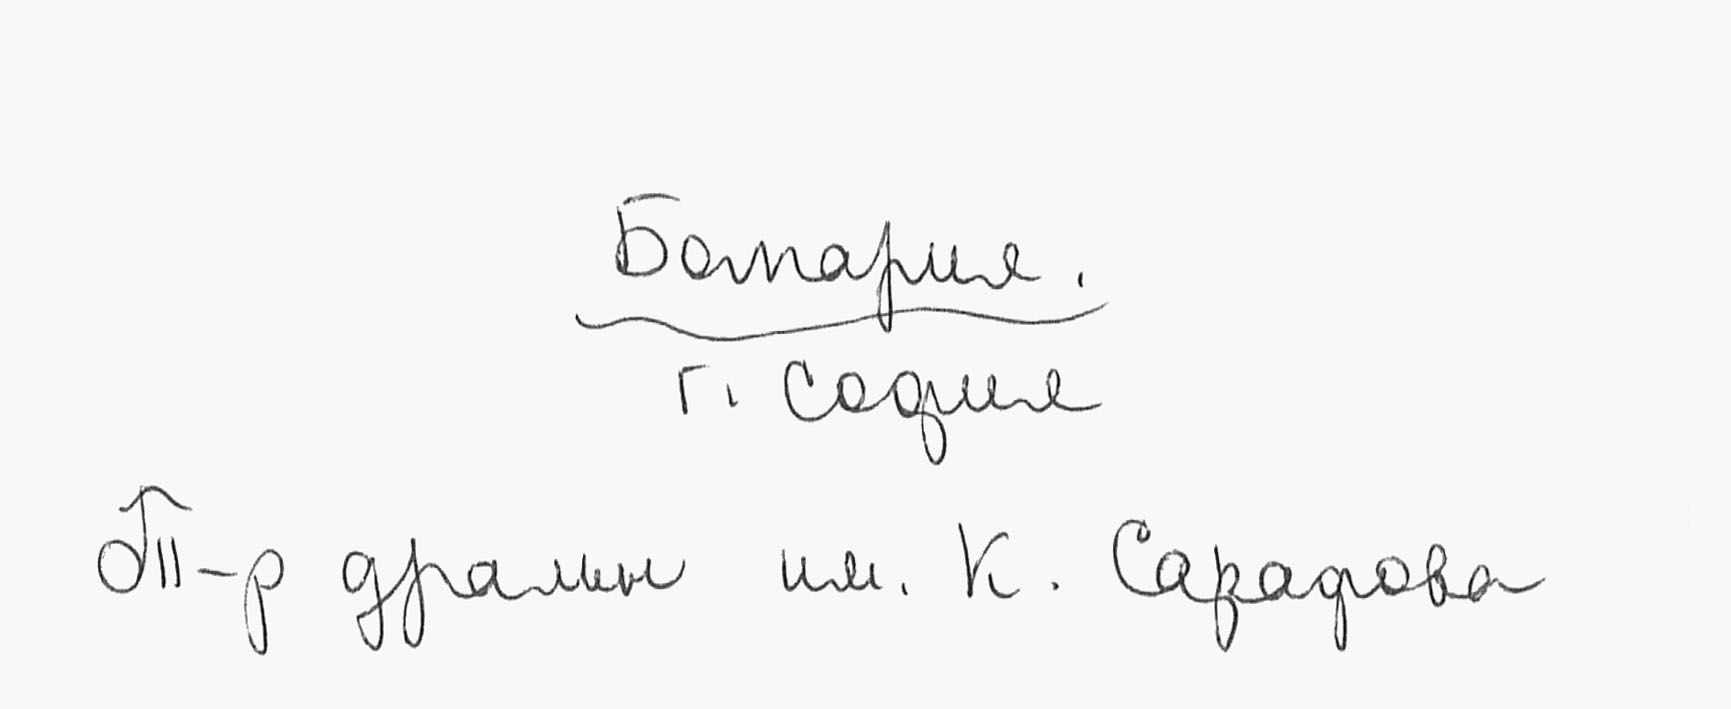 Болгария.
г. София
Т-р драмы им. К. Сарафова